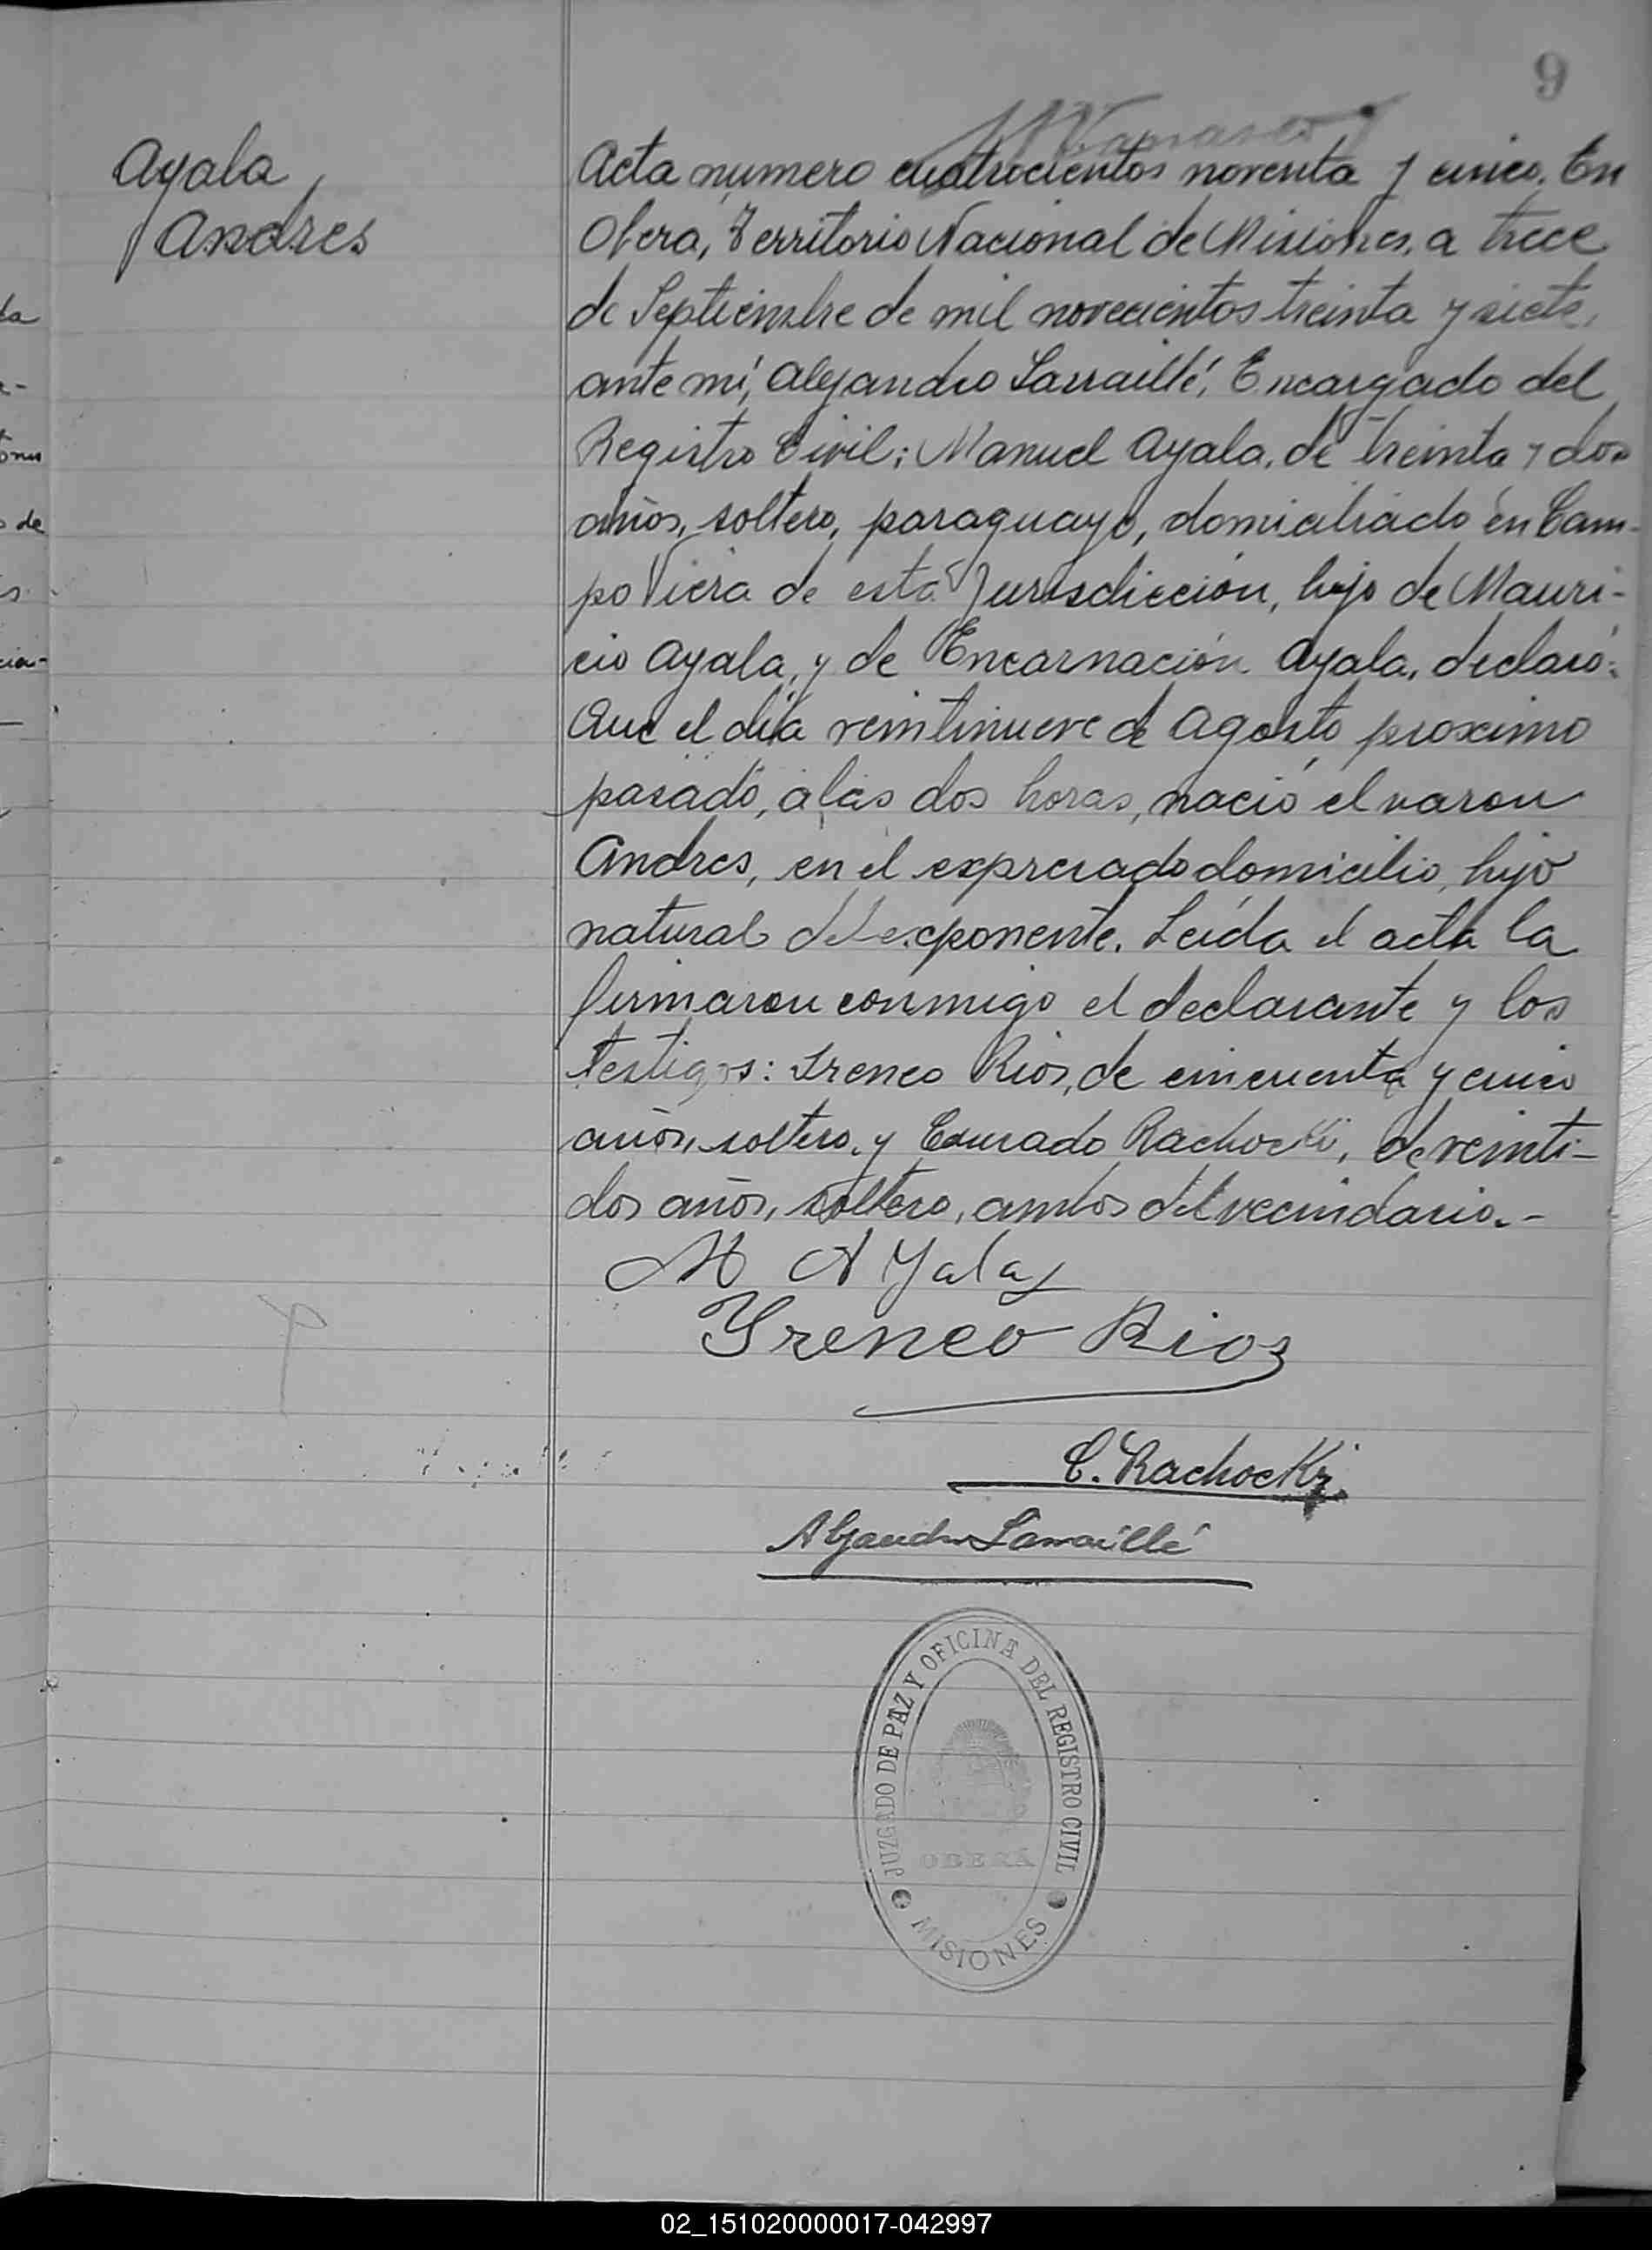 9
Ayala
Andres
Acta numero cuatrocientos noventa y cinco. En
Obera, Territorio Nacional de Misiones, a trece
de Septiembre de mil novecientos treinta y siete,
ante mí, Alejandro Larraillé, Encargado del
Registro Civil; Manuel Ayala, de treinta y dos
años, soltero, paraguayo, domiciliado en Cam-
po Viera de esta Jurisdicción, hijo de Mauri-
cio Ayala, y de Encarnación Ayala, declaró:
Que el día veintinueve de Agosto proximo
pasado, a las dos horas, nació el varon
Andres, en el expresado domicilio, hijo
natural del exponente. Leída el acta la
firmaron conmigo el declarante y los
testigos: Ireneo Rios, de cincuenta y cinco
años, soltero, y Conrado Rachocki, de veinti-
dos años, soltero, ambos del vecindario.-
M Ayala
Yreneo Rios
C. Rachocki
Alejandro Larraillé
JUZGADO DE PAZ Y OFICINA DEL REGISTRO CIVIL
OBERÁ
MISIONES
da
de
cia-
02_151020000017-042997